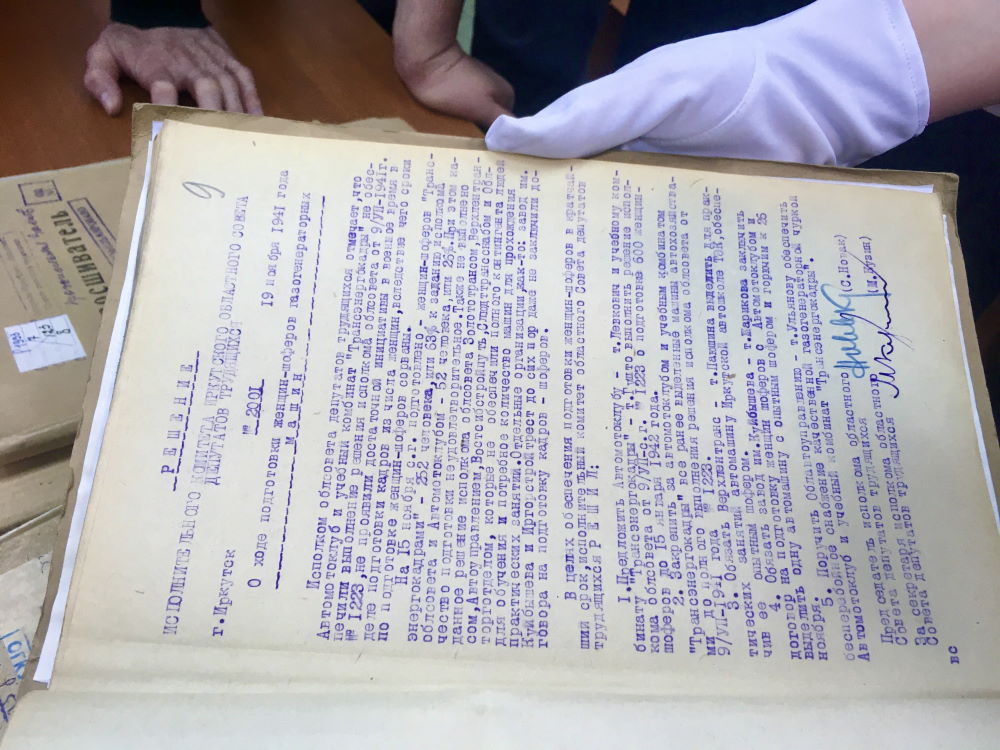 9
Р Е Ш Е Н И Е
ИСПОЛНИТЕЛЬНОГО КОМИТЕТА ИРКУТСКОГО ОБЛАСТНОГО СОВЕТА
ДЕПУТАТОВ ТРУДЯЩИХСЯ
№ 2001
г. Иркутск 19 ноября 1941 года
О ходе подготовки женщин-шоферов газогенераторных
м а ш и н.
Исполком облсовета депутатов трудящихся отмечает, что
Автомотоклуб и учебный комбинат "Трансэнергокадры" не обес-
печили выполнение решения исполкома облсовета от 9/УП-1941г.
№ 1223, не проявили достаточной инициативы в военное время в
деле подготовки кадров из числа женщин, вследствие чего сроки
по подготовке женщин-шоферов сорваны.
На 15 ноября с.г. подготовлено - женщин-шоферов "Транс-
энергокадрами" - 252 человека, или 63% к заданию исполкома
облсовета и Автомотоклубом - 52 человека или 26%. При этом ка-
чество подготовки неудовлетворительное. Также не выполнено
данное решение исполкома облсовета Золототрансом, Верхлентран-
сом, Автоуправлением, Востсибстройпуть, Слюдтранссnабом и Обл-
торготделом, которые не обеспечили полного контингента людей
для обучения и потребное количество машин для прохождения
практических занятий. Отдельные организации, как-то: завод им.
Куйбышева и Иргорстройтрест до сих пор даже не заключили до-
говора на подготовку кадров - шоферов.
В целях обеспечения подготовки женщин-шоферов в кратчай-
ший срок, исполнительный комитет областного Совета депутатов
трудящихся Р Е Ш И Л:
1. Предложить Автомотоклубу - т. Левкович и учебному ком-
бинату "Трансэнергокадры" - т. выполнить решение испол-
кома облсовета от 9/УП-41 г. № 1223 о подготовке 600 женщин-
шоферов до 15 января 1942 года.
2. Закрепить за автомотоклубом и учебным комбинатом
"Трансэнергокадры" все ранее выделенные машины автохозяйства-
ми до полного выполнения решения исполкома облсовета от
9/УП-1941 года № 1223.
3. Обязать Верхлентранс - т. Лакшина выделить для прак-
тических занятий автомашину Иркутской автошколе ТОК, обеспе-
чив ее опытным шофером.
4. Обязать завод им. Куйбышева - т. Марикова заключить
договор на подготовку женщин шоферов с Автомотоклубом и
выделить одну автомашину с опытным шофером и горючим к 25
ноября.
5. Поручить Облавтоуправлению - т. Ульянову обеспечить
бесперебойное снабжение качественной газогенераторной чуркой
Автомотоклуб и учебный комбинат "Трансэнергокадры".
Председатель исполкома областного
Совета депутатов трудящихся (С. Новак)
За секретаря исполкома областного
Совета депутатов трудящихся (М. Кузин)
вс